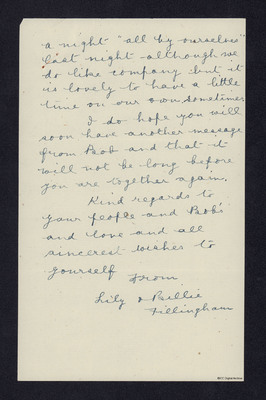 a night "all by ourselves"
last night - although we
do like company - but it
is lovely to have a little
time on our own sometimes
I do hope you will
soon have another message
from Bob and that it
will not be long before
you are together again.
Kind regards to
your people and Bob's
and love and all
sincerest wishes to
yourself from
Lily & Billie
Fillingham